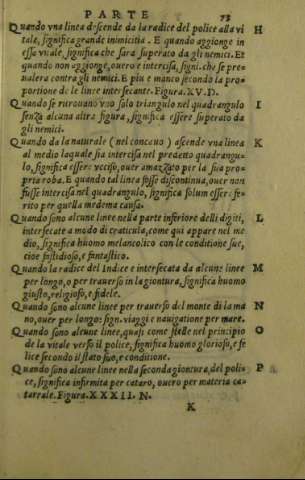 PARTE 73
Quando vna linea descende da la radice del police alla vi H
tale, significa grande inimicitia. E quando aggionge in
essa vitale, significa che sara superato da gli nemici. Et
quando non aggionge, ouero è intercisa, signi. che se pre
ualera contra gli nemici. E piu e manco secondo la pro=
portione de le linee intersecante. Figura. XV. D.
Quando se ritrouano vno solo triangulo nel quadrangulo I
senza alcuna altra figura, significa essere superato da
gli nemici.
Quando da la naturale (nel concauo) ascende vna linea K
al medio laquale sia intercisa nel predetto quadrangu-
lo, significa essere vcciso, ouer amazzato per la sua pro=
pria roba. E quando tal linea fosse discontinua, ouer non
fusse intercisa nel quadrangulo, significa solum esser: fe=
rito per quella medema causa.
Quando sono alcune linee nella parte inferiore delli digiti, L
intersecate a modo di craticula, come qui appare nel me
dio, significa huomo melancolico con le conditione sue,
cioe fastidioso, e fantastico.
Quando la radice del Indice e intersecata da alcune linee M
per longo, o per trauerso in la giontura, significa huomo
giusto, religioso, e fidele.
Quando sono alcune linee per trauerso del monte di la ma N
no, ouer per longo: sign. viaggi e nauigatione per mare.
Quando sono alcune linee, quasi come stelle nel principio O
de la vitale verso il police, significa huomo glorioso, e fe
lice secondo il stato suo, e conditione.
Quando sono alcune linee nella seconda giontura, del poli= P
ce, significa infirmita per cataro, ouero per materia ca=
tarrale. Figura. XXXII. N.
K